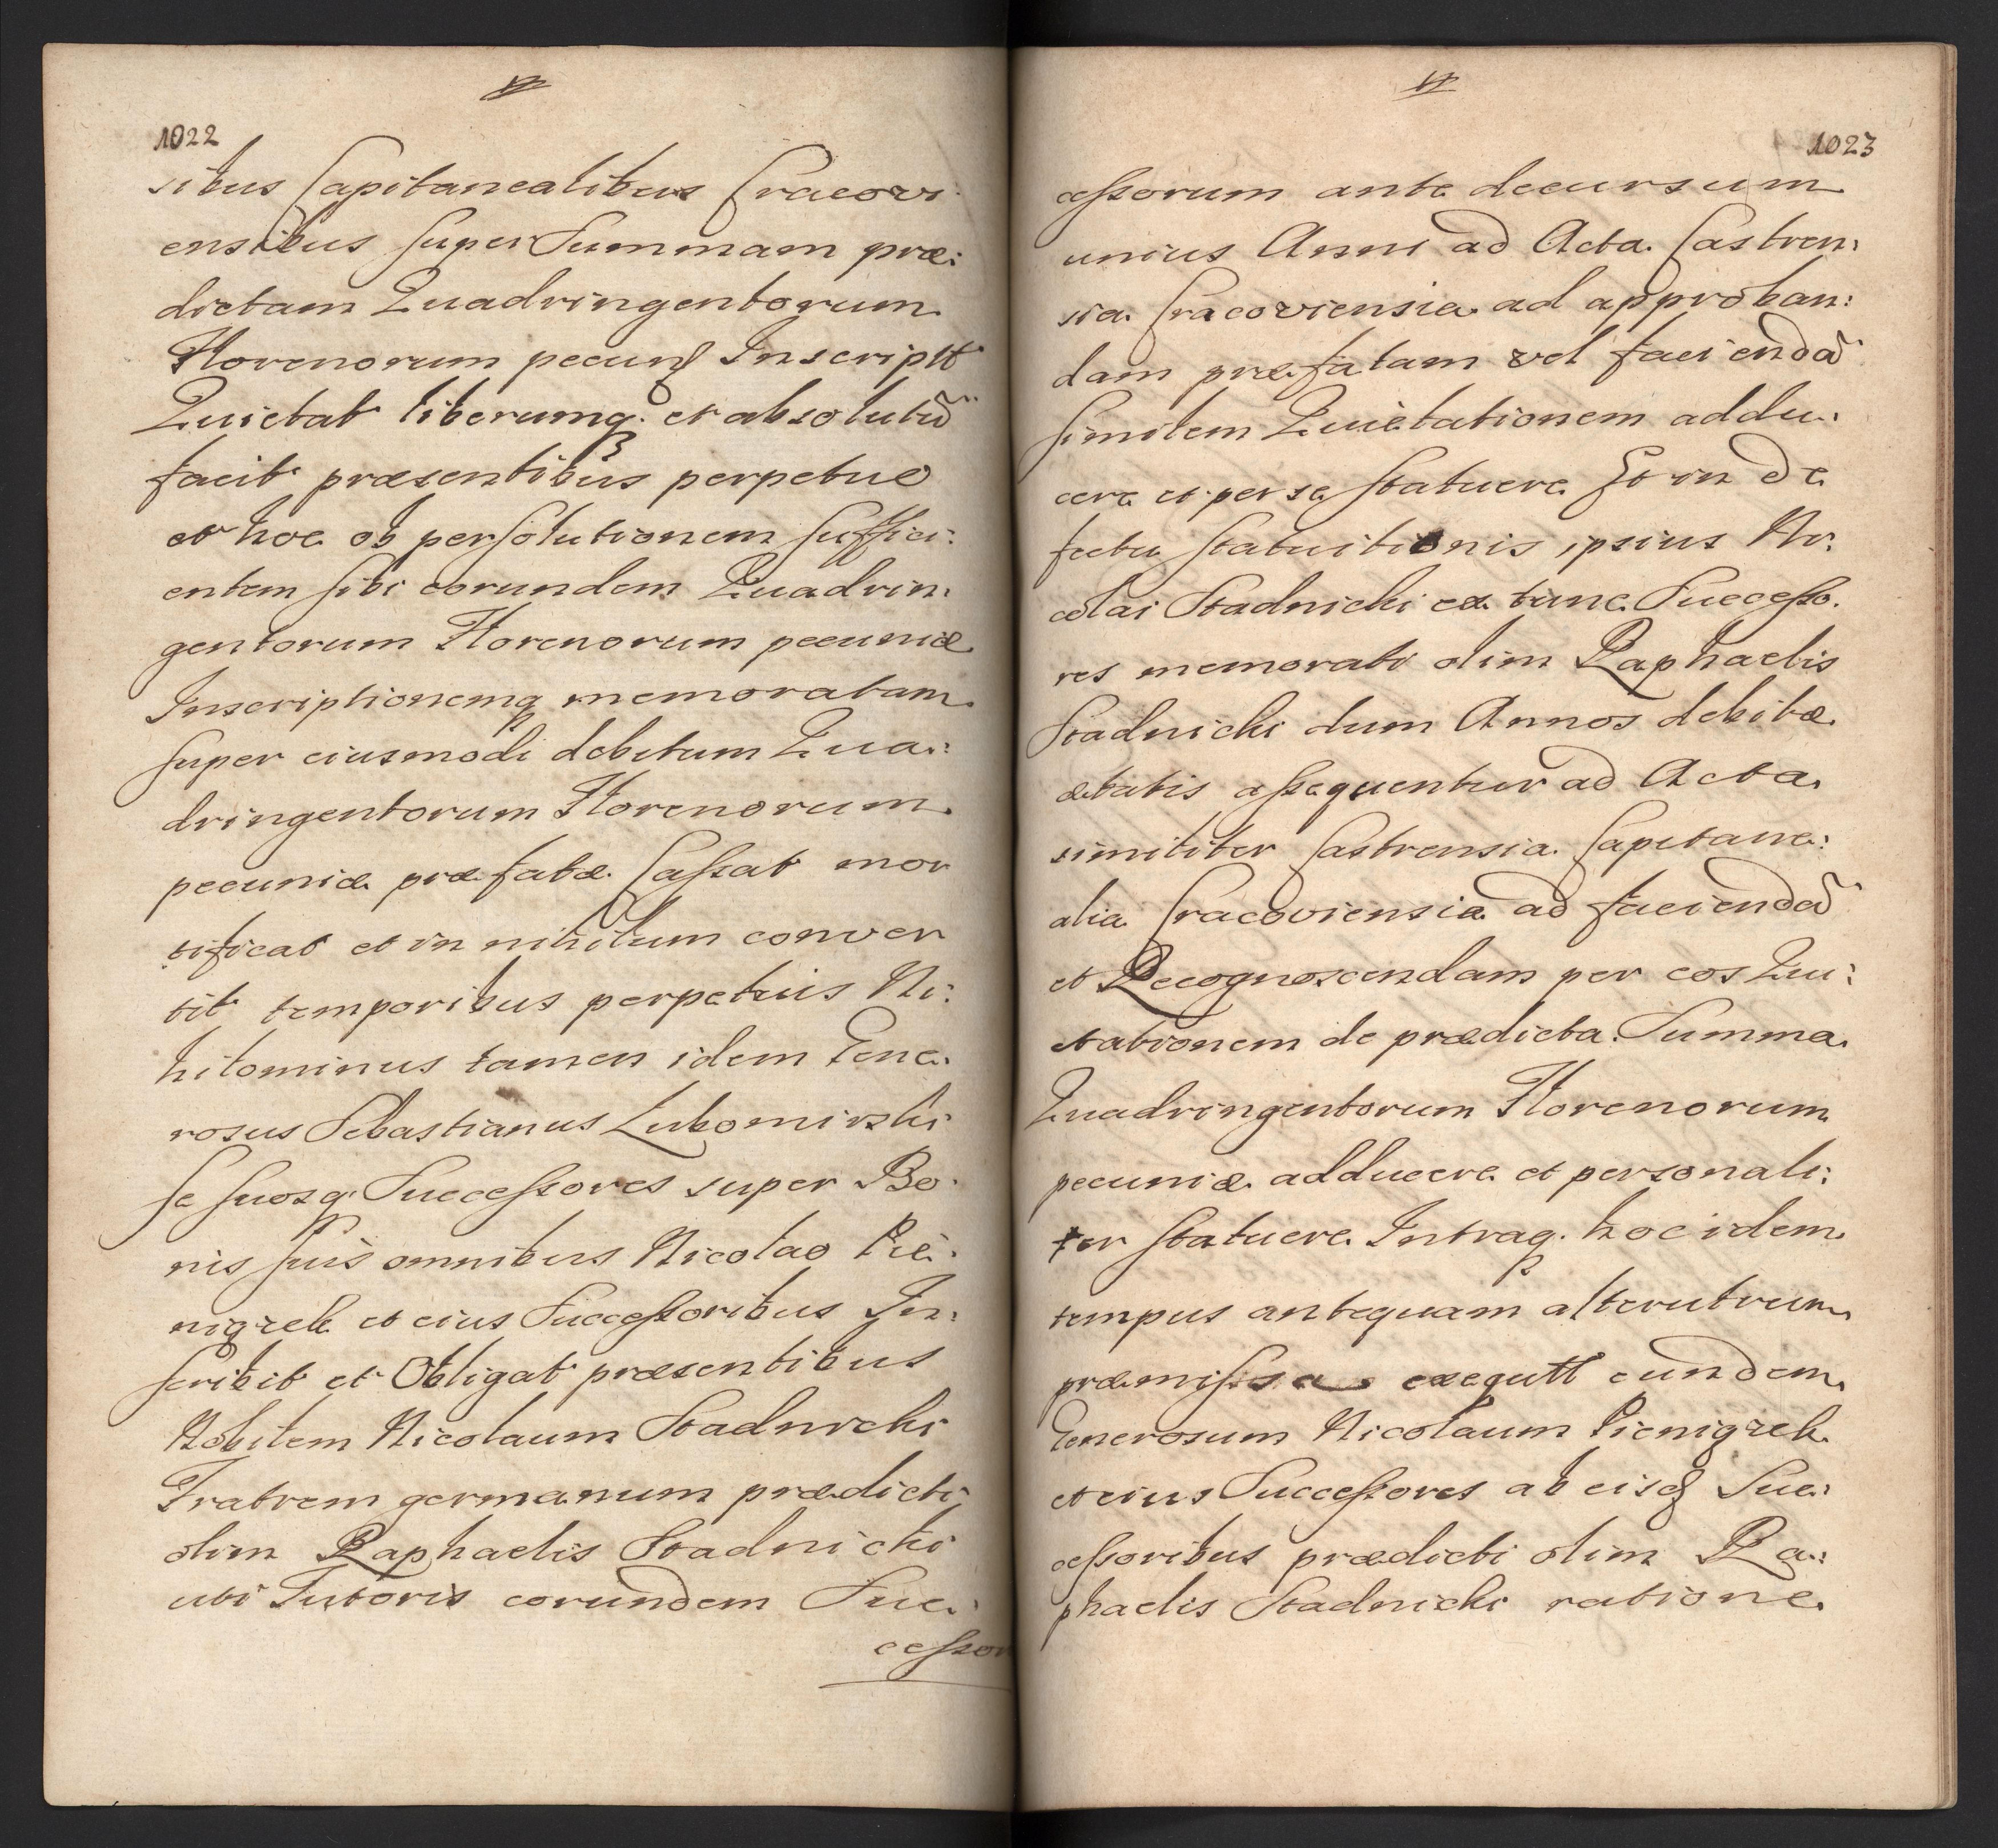 1022
sibus Capitanealibus Cracovi
ensibus super Summam præ:
dictam Quadringentorum
Florenorum pecun Inscript
Quietat liberumq. et absolutũ
facit præsentibus perpetuo
et hoc ob persolutionem suffici:
entem sibi eorundem Quadrin:
gentorum Florenorum pecuniæ
Inscriptionemq memoratam
super eiusmodi debitum Qua:
dringentorum Florenorum
pecuniæ præfatæ Cassat mor
tificat et in nihilum conver
tit temporibus perpetuis Ni:
hilominus tamen idem Gene:
rosus Sebastianus Lubomirski
se suosq. Successores super Bo:
nis suis omnibus Nicolao Pie:
nigzek et eius Successoribus In:
scribit et Obligat præsentibus
Nobilem Nicolaum Stadnicki
Fratrem germanum prædicti
olim Raphaelis Stadnicki
uti Tutoris eorundem Suc:
cessor
1023
cessorum ante decursum
unius Anni ad Acta Castren:
sia Cracoviensia ad approban:
dam præfatam vel faciendã
similem Quietationem addu:
cere et per se statuere Et in de
fectu statuitionis ipsius Ni:
colai Stadnicki ex tunc Successo:
res memorati olim Raphaelis
Stadnicki dum Annos debitæ
ætatis assequentur ad Acta
similiter Castrensia Capitane:
alia Cracoviensia ad faciendã
et Recognoscendam per eos Qui:
etationem de prædicta Summa
Quadringentorum Florenorum
pecuniæ adducere et personali:
ter statuere Intraq. hoc idem
tempus antequam alterutrum
præmissa exequtt eundem
Generosum Nicolaum Pienigzek
et eius Successores ab eisd Suc:
cessoribus prædicti olim Ra:
phaelis Stadnicki ratione